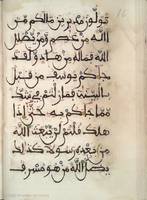 16
تولون مدبرين ما لكم من
الله من عصم ومن يضلل
الله فما له من هاد ولقد
جاءكم يوسف من قبل
بالبينت فما زلتم في شك
مما جاءكم به حتى إذا
هلك قلتم لن يبعث الله
من بعده رسولا كذلك
يضل الله من هو مسرف